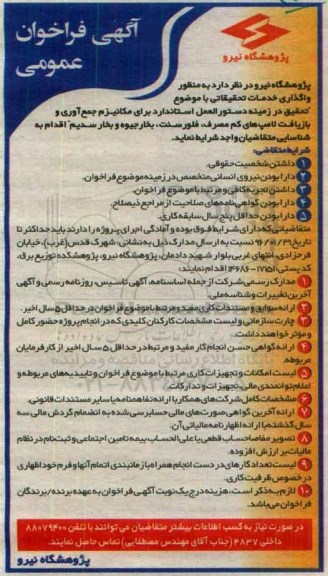 پژوهشگاه نیرو
آگهی فراخوان
عمومی
پژوهشگاه نیرو در نظر دارد به منظور
واگذاری خدمات تحقیقاتی با موضوع
"تحقیق در زمینه دستورالعمل استاندارد برای مکانیزم جمع‌آوری و
بازیافت لامپ‌های کم مصرف، فلورسنت، بخار جیوه و بخار سدیم" اقدام به
شناسایی متقاضیان واجد شرایط نماید.
شرایط متقاضی:
۱ داشتن شخصیت حقوقی.
۲ دارا بودن نیروی انسانی متخصص در زمینه موضوع فراخوان.
۳ داشتن تجربه کافی و مرتبط با موضوع فراخوان.
۴ دارا بودن گواهی‌نامه‌های صلاحیت از مراجع ذیصلاح.
۵ دارا بودن حداقل پنج سال سابقه کاری.
متقاضیانی که دارای شرایط فوق بوده و آمادگی اجرای پروژه را دارند باید حداکثر تا
تاریخ ۹۶/۰۱/۳۱ نسبت به ارسال مدارک ذیل به نشانی: شهرک قدس (غرب)، خیابان
فرحزادی، انتهای غربی بلوار شهید دادمان، پژوهشگاه نیرو، پژوهشکده توزیع برق،
کدپستی: ۱۷۱۵۱-۱۴۶۸۶ اقدام نمایند:
۱ مدارک رسمی شرکت از جمله اساسنامه، آگهی تاسیس، روزنامه رسمی و آگهی
آخرین تغییرات و شناسه ملی.
۲ ارائه سوابق و مستندات کاری مفید و مرتبط با موضوع فراخوان در حداقل ۵ سال اخیر.
۳ چارت سازمانی و لیست مشخصات کارکنان کلیدی که در انجام پروژه حضور کامل
و مؤثر خواهند داشت.
۴ ارائه گواهی حسن انجام کار مفید و مرتبط در حداقل ۵ سال اخیر از کارفرمایان
مربوطه.
۵ لیست امکانات و تجهیزات کاری مرتبط با موضوع فراخوان و تاییدیه‌های مربوطه و
اعلام توانمندی مالی، تجهیزات و تدارکات.
۶ مشخصات کامل شرکت‌های همکار با ارائه تفاهم‌نامه یا سایر مستندات قانونی.
۷ ارائه آخرین گواهی صورت‌های مالی حسابرسی شده به انضمام گردش مالی سه
سال گذشته یا ارائه اظهارنامه مالیاتی آن.
۸ تصویر مفاصاحساب قطعی یا علی الحساب بیمه تامین اجتماعی و ثبت‌نام در نظام
مالیات بر ارزش افزوده.
۹ لیست تعداد کارهای در دست انجام همراه با زمانبندی اتمام آنها و فرم خوداظهاری
در خصوص ظرفیت کاری.
۱۰ لازم به ذکر است، هزینه درج یک نوبت آگهی فراخوان به عهده برنده/برندگان
فراخوان می‌باشد.
در صورت نیاز به کسب اطلاعات بیشتر متقاضیان می توانند با تلفن ۸۸۰۷۹۴۰۰
داخلی ۴۸۳۷ (جناب آقای مهندس مصطفایی) تماس حاصل نمایند.
پژوهشگاه نیرو